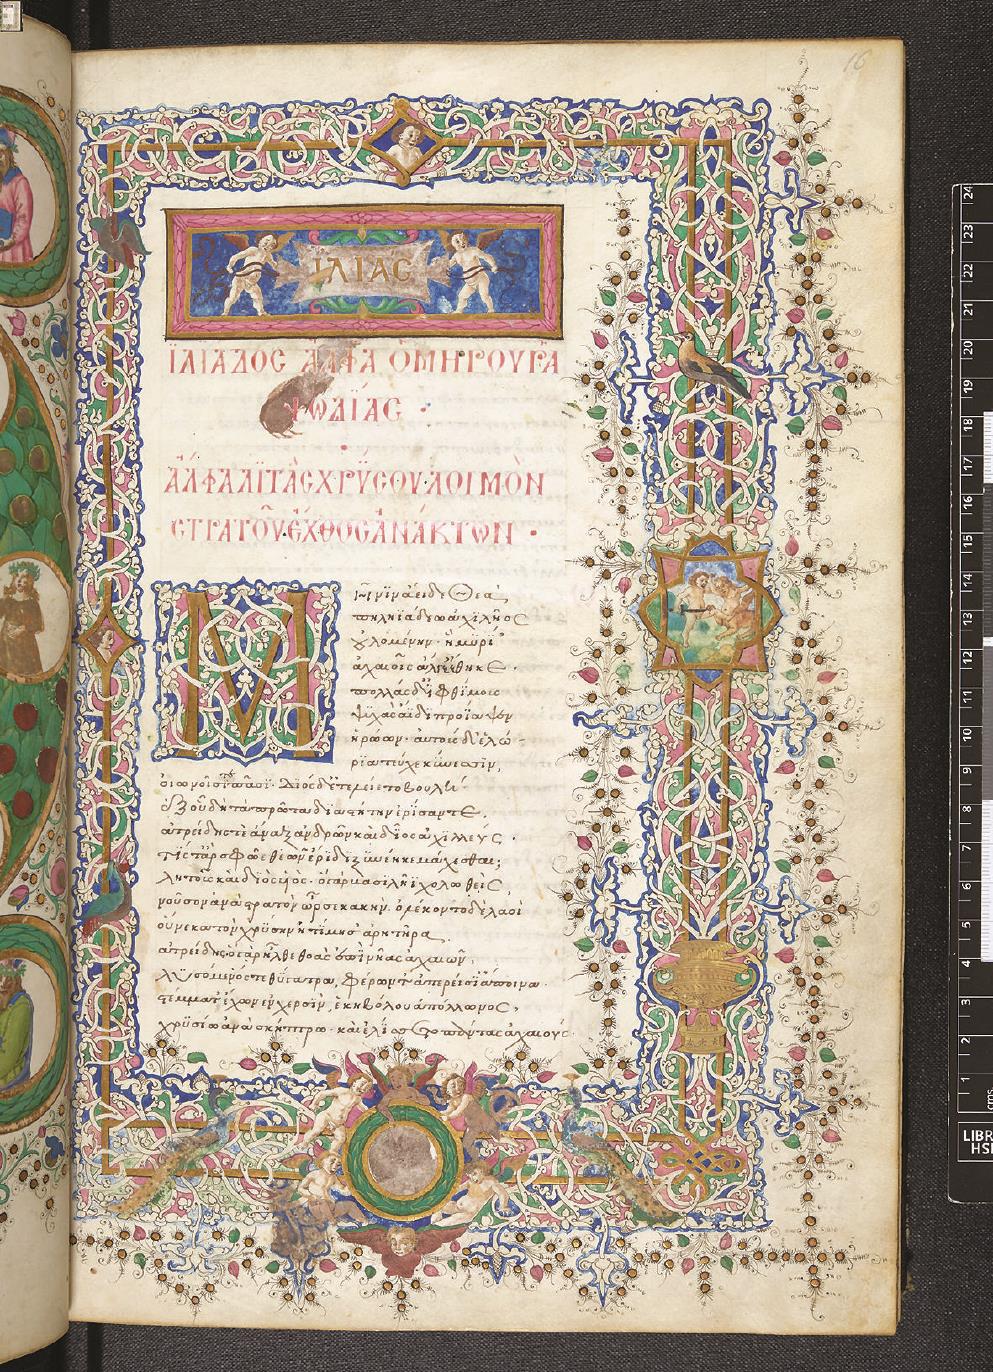 16
ΙΛΙΑC
ἸΛΙΆΔΟC ἌΛΦΑ ὉΜΉΡΟΥ ῬΑ
ΨΩΔΊΑC ·
ἌΛΦΑ ΛΙΤᾺC ΧΡΎCΟΥ · ΛΟΙΜῸΝ
CΤΡΑΤΟΥ͂ · ἘΧΘΟC ἈΝΆΚΤΩΝ ·
Μῆνιν ἄειδε Θεὰ
πηληϊάδεω ἀχιλῆος
ὀυλομένην · ἣ μυρί'
ἀχαιοῖς ἄλγε' ἔθηκε ·
πολλὰς δ' ἰφθίμους
ψυχὰς ἄϊδι προΐαψεν
ἡρώων · αὐτοὺς δὲ ἑλώ
ρια τεῦχε κύνεσσιν,
οἰωνοῖσί τε πᾶσι · Διὸς δ' ἐτελείετο βουλή ·
ἐξ οὗ δὴ τὰ πρῶτα διαστήτην ἐρίσαντε,
ἀτρείδης τὲ ἄναξ ἀνδρῶν καὶ δῖος ἀχιλλεύς ·
τίς τάρ σφωε θεῶν ἔριδι ξυνέηκε μάχεσθαι;
λητοῦς καὶ διὸς υἱός · ὁ γὰρ βασιλῆϊ χολωθεὶς,
νοῦσον ἀνὰ στρατὸν ὦρσε κακήν. ὀλέκοντο δὲ λαοὶ
οὕνεκα τὸν χρύσην ἠτίμησ' ἀρητῆρα
ἀτρείδης · ὁ γὰρ ἦλθε θοὰς ἐπὶ νῆας ἀχαιῶν,
λυσόμενός τε θύγατρα, φέρων τ' ἀπερείσι' ἄποινα ·
στέμματ' ἔχων ἐν χερσὶν, ἑκηβόλου ἀπόλλωνος,
χρυσέω ἀνὰ σκήπτρω · καὶ ἐλίσσετο πάντας ἀχαιούς
24
23
22
21
20
19
18
17
16
15
14
13
12
11
10
9
8
7
6
5
4
3
2
1
cms
LIBR
HSI